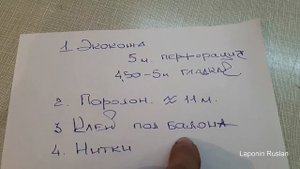 1. Экокожа
5 м. перфорация
4,50-5 м гладкая
2. Поролон. х 11 м.
3 Клей под балона
4. Нитки
Laponin Ruslan